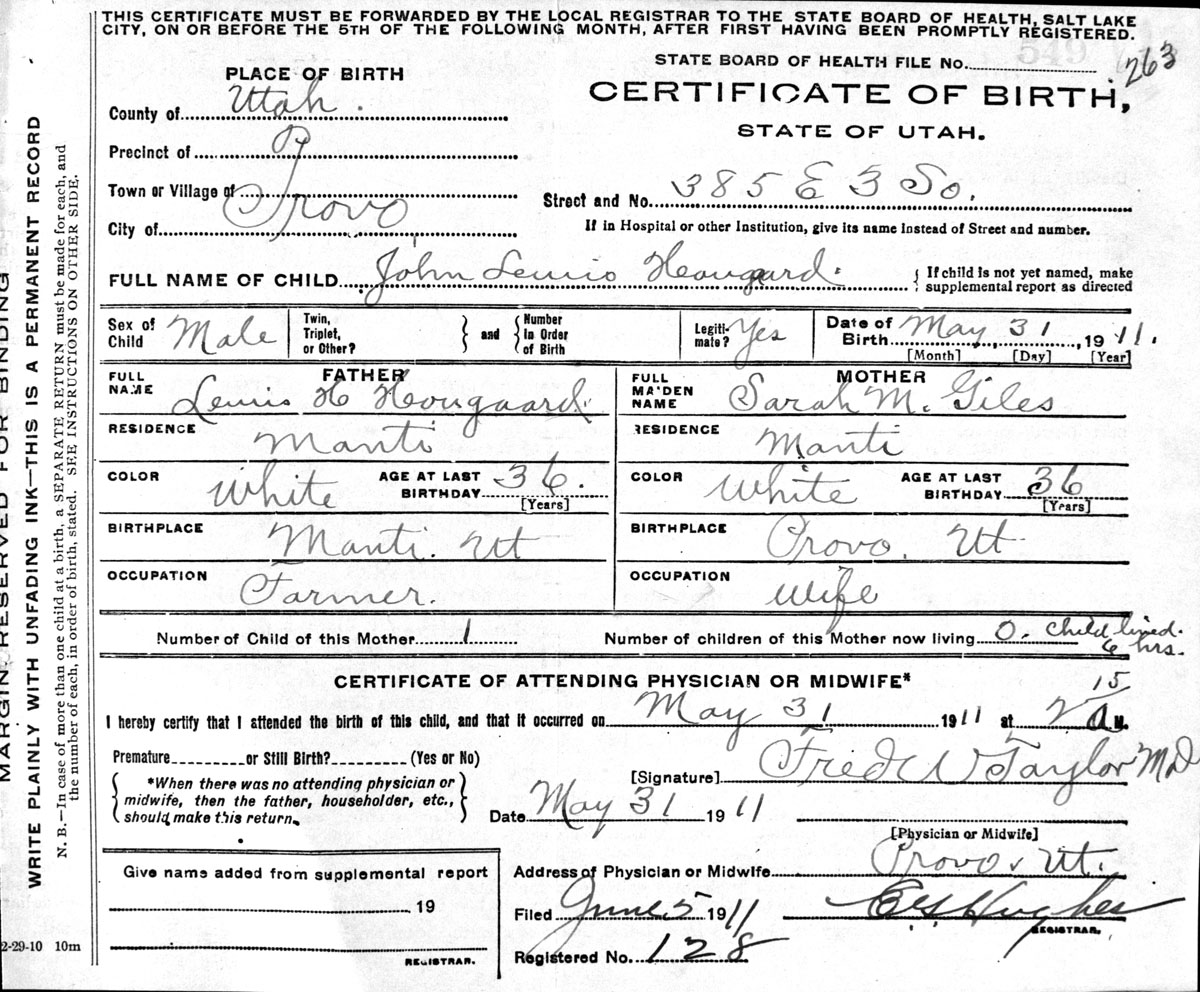 THIS CERTIFICATE MUST BE FORWARDED BY THE LOCAL REGISTRAR TO THE STATE BOARD OF HEALTH, SALT LAKE
CITY, ON OR BEFORE THE 5TH OF THE FOLLOWING MONTH, AFTER FIRST HAVING BEEN PROMPTLY REGISTERED.
549
STATE BOARD OF HEALTH FILE No. 263
PLACE OF BIRTH
CERTIFICATE OF BIRTH,
STATE OF UTAH.
County of Utah.
Precinct of
Town or Village of
City of Provo
Street and No. 385 E 3 So.
If in Hospital or other Institution, give its name instead of Street and number.
FULL NAME OF CHILD John Lewis Hougaard.
If child is not yet named, make
supplemental report as directed
Sex of Child Male
Twin, Triplet, or Other? and Number in Order of Birth
Legitimate? Yes
Date of Birth May 31, 1911.
[Month] [Day] [Year]
FATHER
FULL NAME Lewis H Hougaard.
MOTHER
FULL MAIDEN NAME Sarah M. Giles
RESIDENCE Manti
RESIDENCE Manti
COLOR White AGE AT LAST BIRTHDAY 36. [Years]
COLOR White AGE AT LAST BIRTHDAY 36 [Years]
BIRTHPLACE Manti. Ut
BIRTHPLACE Provo, Ut
OCCUPATION Farmer.
OCCUPATION Wife
Number of Child of this Mother 1
Number of children of this Mother now living 0. child lived.
6 hrs.
CERTIFICATE OF ATTENDING PHYSICIAN OR MIDWIFE*
I hereby certify that I attended the birth of this child, and that it occurred on May 31 1911 at 2 15 A M.
Premature or Still Birth? (Yes or No)
*When there was no attending physician or
midwife, then the father, householder, etc.,
should make this return.
[Signature] Fred W Taylor MD
Date May 31 1911
[Physician or Midwife]
Give name added from supplemental report
19
REGISTRAR.
Address of Physician or Midwife Provo, Ut.
Filed June 5 1911
Hughes
REGISTRAR.
Registered No. 128
MARGIN RESERVED FOR BINDING
WRITE PLAINLY WITH UNFADING INK—THIS IS A PERMANENT RECORD
N. B.—In case of more than one child at a birth, a SEPARATE RETURN must be made for each, and
the number of each, in order of birth, stated. SEE INSTRUCTIONS ON OTHER SIDE.
2-29-10 10m